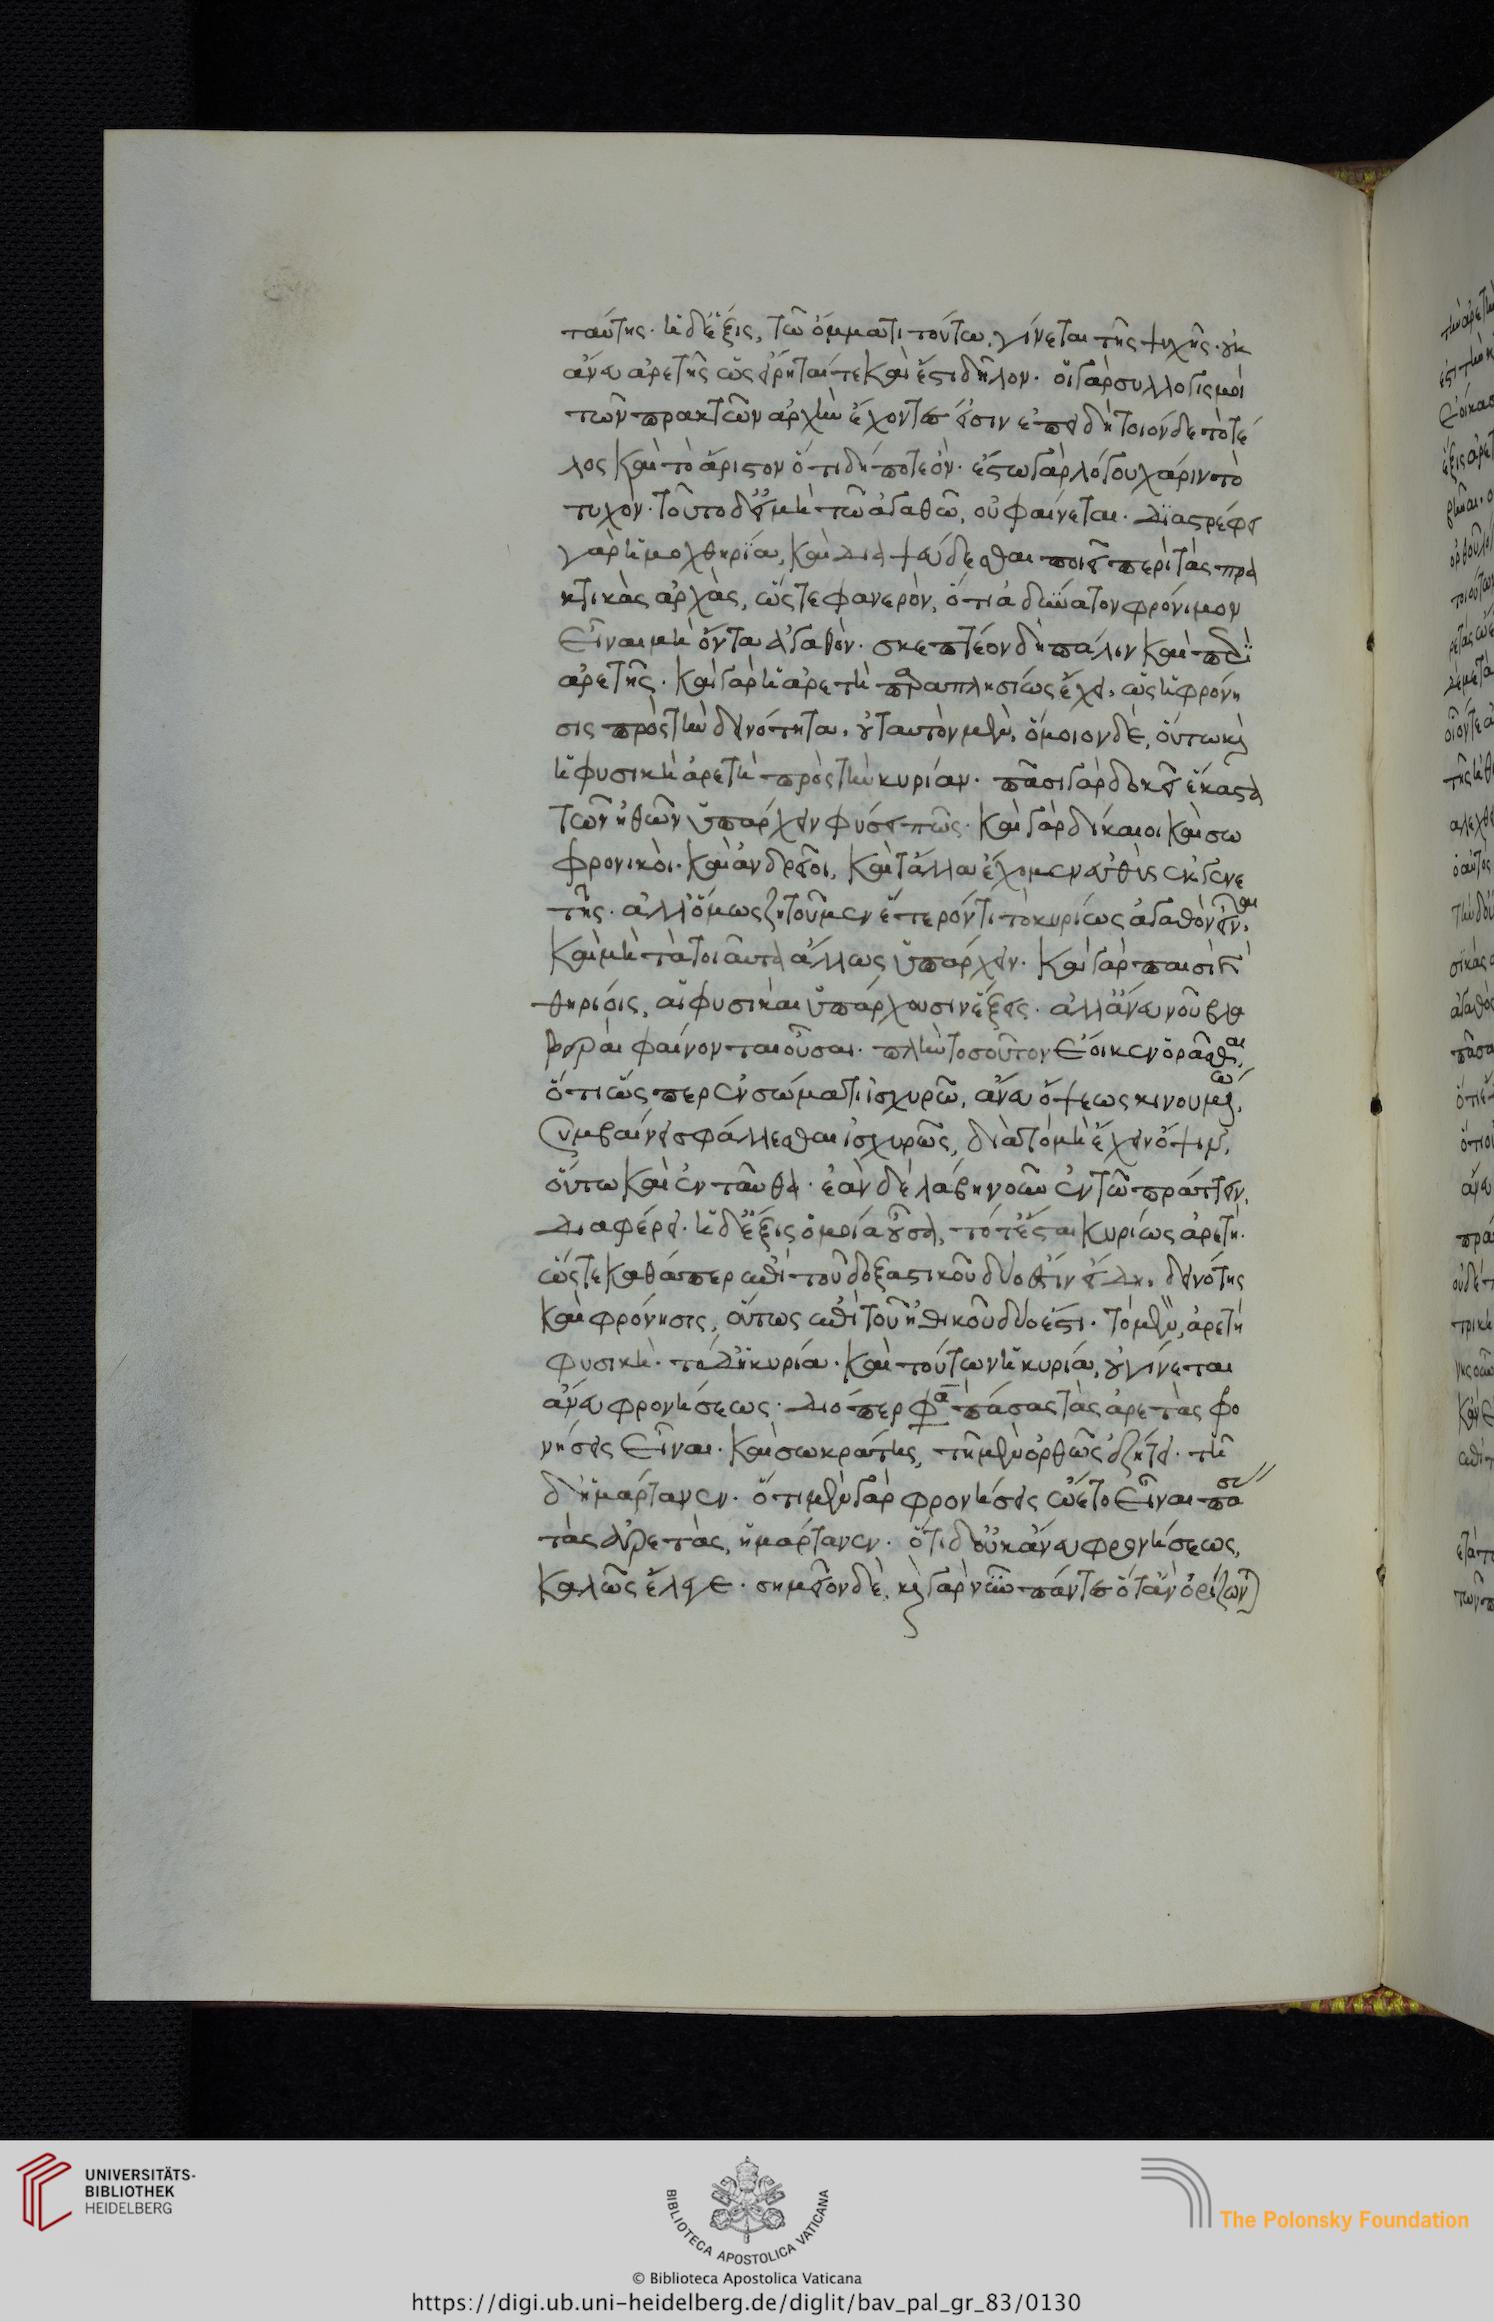 ταύτης. ἡ δ' ἕξις, τῶ ὄμματι τούτω, γίνεται τῆς ψυχῆς. οὐκ
ἄνευ ἀρετῆς ὡς εἴρηταί τε καὶ ἔστι δῆλον. οἱ γὰρ συλλογισμοὶ
τῶν πρακτῶν ἀρχὴν ἔχοντές εἰσιν ἐπειδὴ τοιόνδε τὸ τέ
λος καὶ τὸ ἄριστον ὅτι δήποτε ὄν. ἔστω γὰρ λόγου χάριν τὸ
τυχόν. τοῦτο δ' εἰ μὴ τῶ ἀγαθῶ, οὐ φαίνεται. διαστρέφει
γὰρ ἡ μοχθηρία, καὶ διαψεύδεσθαι ποιεῖ περὶ τὰς πρα
κτικὰς ἀρχάς, ὥστε φανερὸν, ὅτι ἀδύνατον φρόνιμον
εἶναι μὴ ὄντα ἀγαθόν. σκεπτέον δὴ πάλιν καὶ περὶ
ἀρετῆς. καὶ γὰρ ἡ ἀρετὴ παραπλησίως ἔχει, ὡς ἡ φρόνη
σις πρὸς τὴν δεινότητα, οὐ ταυτὸν μὲν, ὅμοιον δὲ, οὕτω καὶ
ἡ φυσικὴ ἀρετὴ πρὸς τὴν κυρίαν. πᾶσι γὰρ δοκεῖ ἕκαστα
τῶν ἠθῶν ὑπάρχειν φύσει πως. καὶ γὰρ δίκαιοι καὶ σω
φρονικοὶ. καὶ ἀνδρεῖοι, καὶ τἄλλα ἔχομεν εὐθὺς ἐκ γενε
τῆς. ἀλλ' ὅμως ζητοῦμεν ἕτερόν τι τὸ κυρίως ἀγαθὸν εἶναι,
καὶ μὴ τὰ τοιαῦτα ἄλλως ὑπάρχειν. καὶ γὰρ παισὶ καὶ
θηρίοις, αἱ φυσικαὶ ὑπάρχουσιν ἕξεις. ἀλλ' ἄνευ νοῦ βλα
βεραὶ φαίνονται οὖσαι. πλὴν τοσοῦτον ἔοικεν ὁρᾶσθαι,
ὅτι ὥσπερ ἐν σώματι ἰσχυρῶ, ἄνευ ὄψεως κινουμένω,
συμβαίνει σφάλλεσθαι ἰσχυρῶς, διὰ τὸ μὴ ἔχειν ὄψιν,
οὕτω καὶ ἐνταῦθα. ἐὰν δὲ λάβη νοῦν ἐν τῶ πράττειν,
διαφέρει. ἡ δ' ἕξις ὁμοία οὖσα, τότ' ἔσται κυρίως ἀρετή.
ὥστε καθάπερ ἐπὶ τοῦ δοξαστικοῦ δύο ἐστὶν εἴδη, δεινότης
καὶ φρόνησις, οὕτως ἐπὶ τοῦ ἠθικοῦ δύο ἐστί. τὸ μὲν, ἀρετὴ
φυσική. τὸ δ' ἡ κυρία. καὶ τούτων ἡ κυρία, οὐ γίνεται
ἄνευ φρονήσεως. διόπερ φασὶ πάσας τὰς ἀρετὰς φρο
νήσεις εἶναι. καὶ σωκράτης, τῆ μὲν ὀρθῶς ἐζήτει. τῆ
δ' ἡμάρτανεν. ὅτι μὲν γὰρ φρονήσεις ὤετο εἶναι πάσας
τὰς ἀρετὰς, ἡμάρτανεν. ὅτι δ' οὐκ ἄνευ φρονήσεως,
καλῶς ἔλεγε. σημεῖον δὲ, καὶ γὰρ νῦν πάντες ὅταν ὁρίζωνται
UNIVERSITÄTS-
BIBLIOTHEK
HEIDELBERG
BIBLIOTECA APOSTOLICA VATICANA
The Polonsky Foundation
© Biblioteca Apostolica Vaticana
https://digi.ub.uni-heidelberg.de/diglit/bav_pal_gr_83/0130